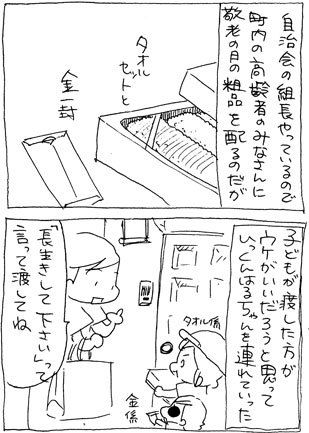 自治会の組長やっているので
町内の高齢者のみなさんに
敬老の月の粗品を配るのだが
タオル
セットと
金一封
子どもが渡した方が
ウケがいいだろうと思って
いっくんはるちゃんを連れていった
タオル係
金係
「長生きして下さい」って
言って渡してね